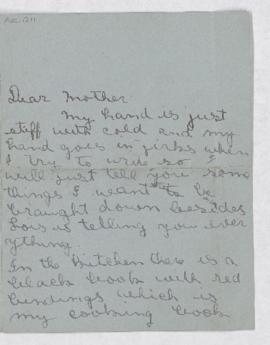 Dear Mother
My hand is just
stiff with cold and my
hand goes in jirks when
I try to write so I
will just tell you som
things I want to be
braught down besides
Lois is telling you ever
ything.
In the kitchen there is a
black book with red
bindings which is
my cooking book